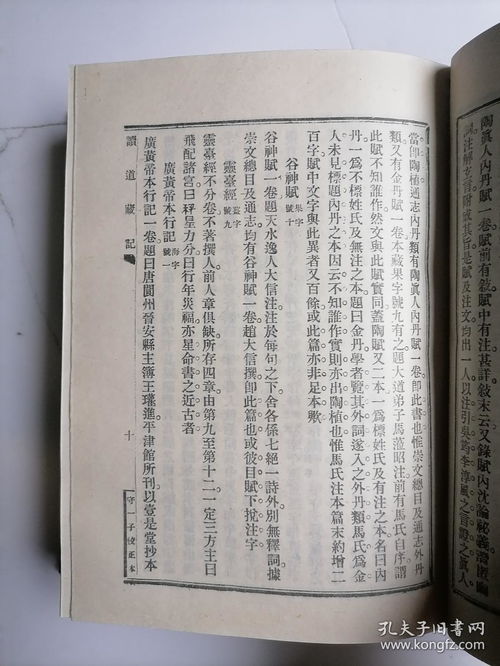 陶眞人內丹賦一卷賦前有敘賦中有注甚詳敘末云又錄賦內沈淪祕義
當即陶植通志內丹類有陶眞人內丹賦一卷即此書也惟崇文總目及通志外丹
類又有金丹賦一卷本藏果字號九有之題大道弟子馬蒞昭注前有馬氏自序謂
此賦不知誰作然文與此賦實同蓋陶賦又二本一爲標姓氏及有注之本名曰內
丹一爲不標姓氏及無注之本題曰金丹學者覽其外詞遂入之外丹類馬氏爲金
人未見標題內丹之本因云不知誰作實則亦出陶植也惟馬氏注本篇末約增二
百字賦中文字與此異者又百餘或此篇亦非足本歟
谷神賦 果字號十
谷神賦一卷題天水逸人大信注注於每句之下舍各係七絕一詩外別無釋詞據
崇文總目及通志均有谷神賦一卷趙大信撰即此篇也或彼目賦下挩注字
靈臺經 薑字號九
靈臺經不分卷不著撰人前八章俱缺所存四章由第九至第十二一定三方主曰
飛配諸宮曰秤星力分曰行年災福亦星命書之近古者
廣黃帝本行記 海字號一
廣黃帝本行記一卷題曰唐閬州晉安縣主簿王瓘進平津館所刊以壹是堂抄本
讀道藏記
十
守一子校正本
孔夫子旧書网
www.kongfz.com